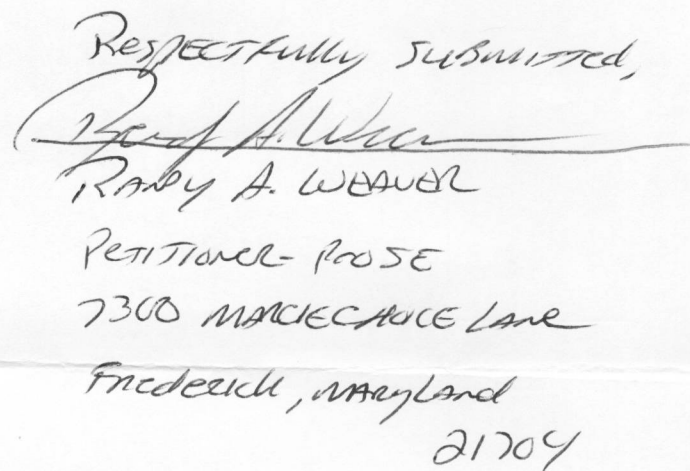 Respectfully Submitted,
Randy A. Weaver
RANDY A. WEAVER
PETITIONER- PRO SE
7300 MARCIE CHOICE LANE
Frederick, MARYLAND
21704